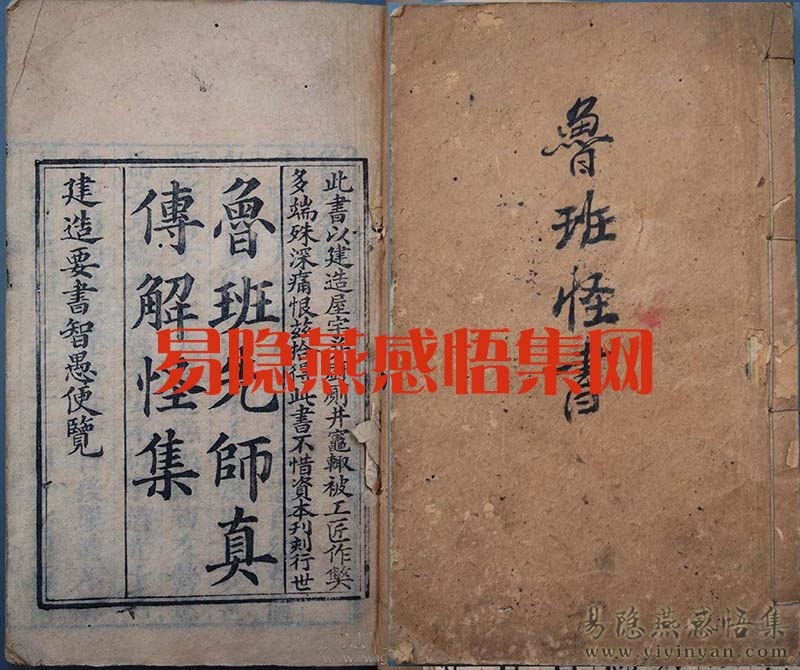 魯班怪書
此書以建造屋宇厨厠井竈輙被工匠作獘
多端殊深痛恨兹拾得此書不惜資本刋刻行世
魯班先師真
傳解怪集
建造要書智愚便覽
易隐燕感悟集网
易隐燕感悟集
www.yiyinyan.com